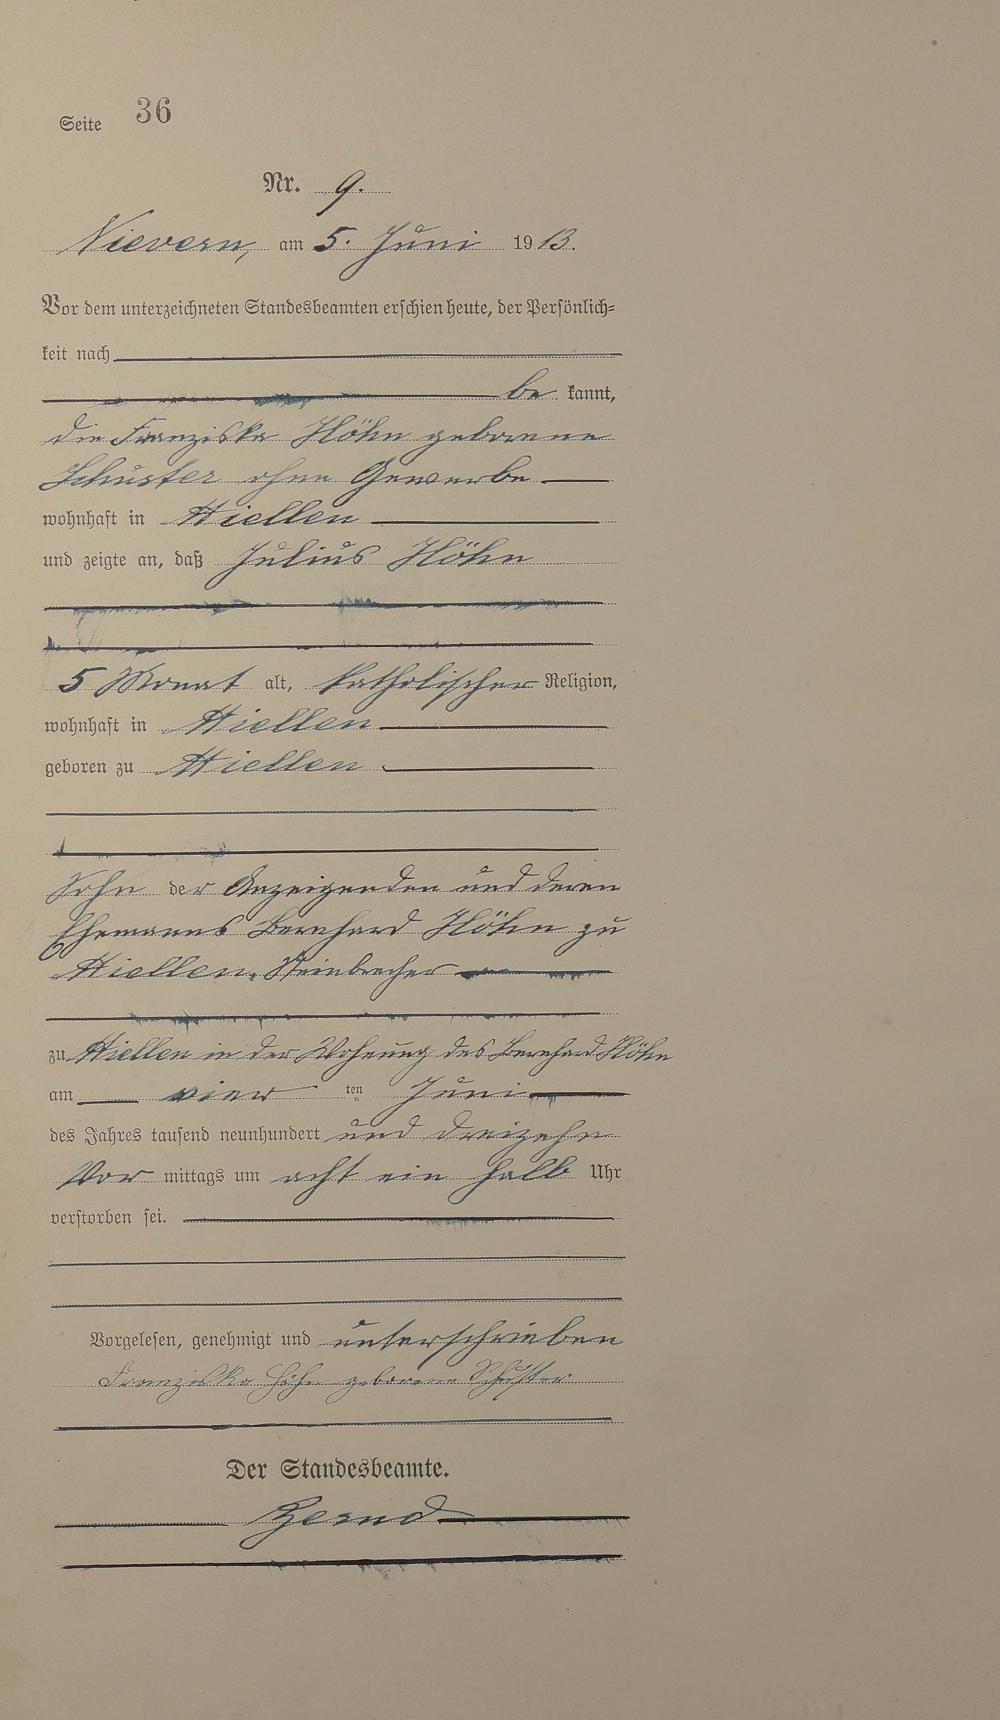 Seite 36
Nr. 9.
Nievern, am 5. Juni 1913.
Vor dem unterzeichneten Standesbeamten erschien heute, der Persönlich-
keit nach
be kannt,
die Franziska Höhn geborene
Schuster ohne Gewerbe
wohnhaft in Hiellen
und zeigte an, daß Julius Höhn
5 Monat alt, katholischer Religion,
wohnhaft in Hiellen
geboren zu Hiellen
Sohn der Anzeigenden und deren
Ehemanns Bernhard Höhn zu
Hiellen, Steinbrecher
zu Hiellen in der Wohnung des Bernhard Höhn
am vier ten Juni
des Jahres tausend neunhundert und dreizehn
Vor mittags um acht ein halb Uhr
verstorben sei.
Vorgelesen, genehmigt und unterschrieben
Franziska Höhn geborene Schuster
Der Standesbeamte.